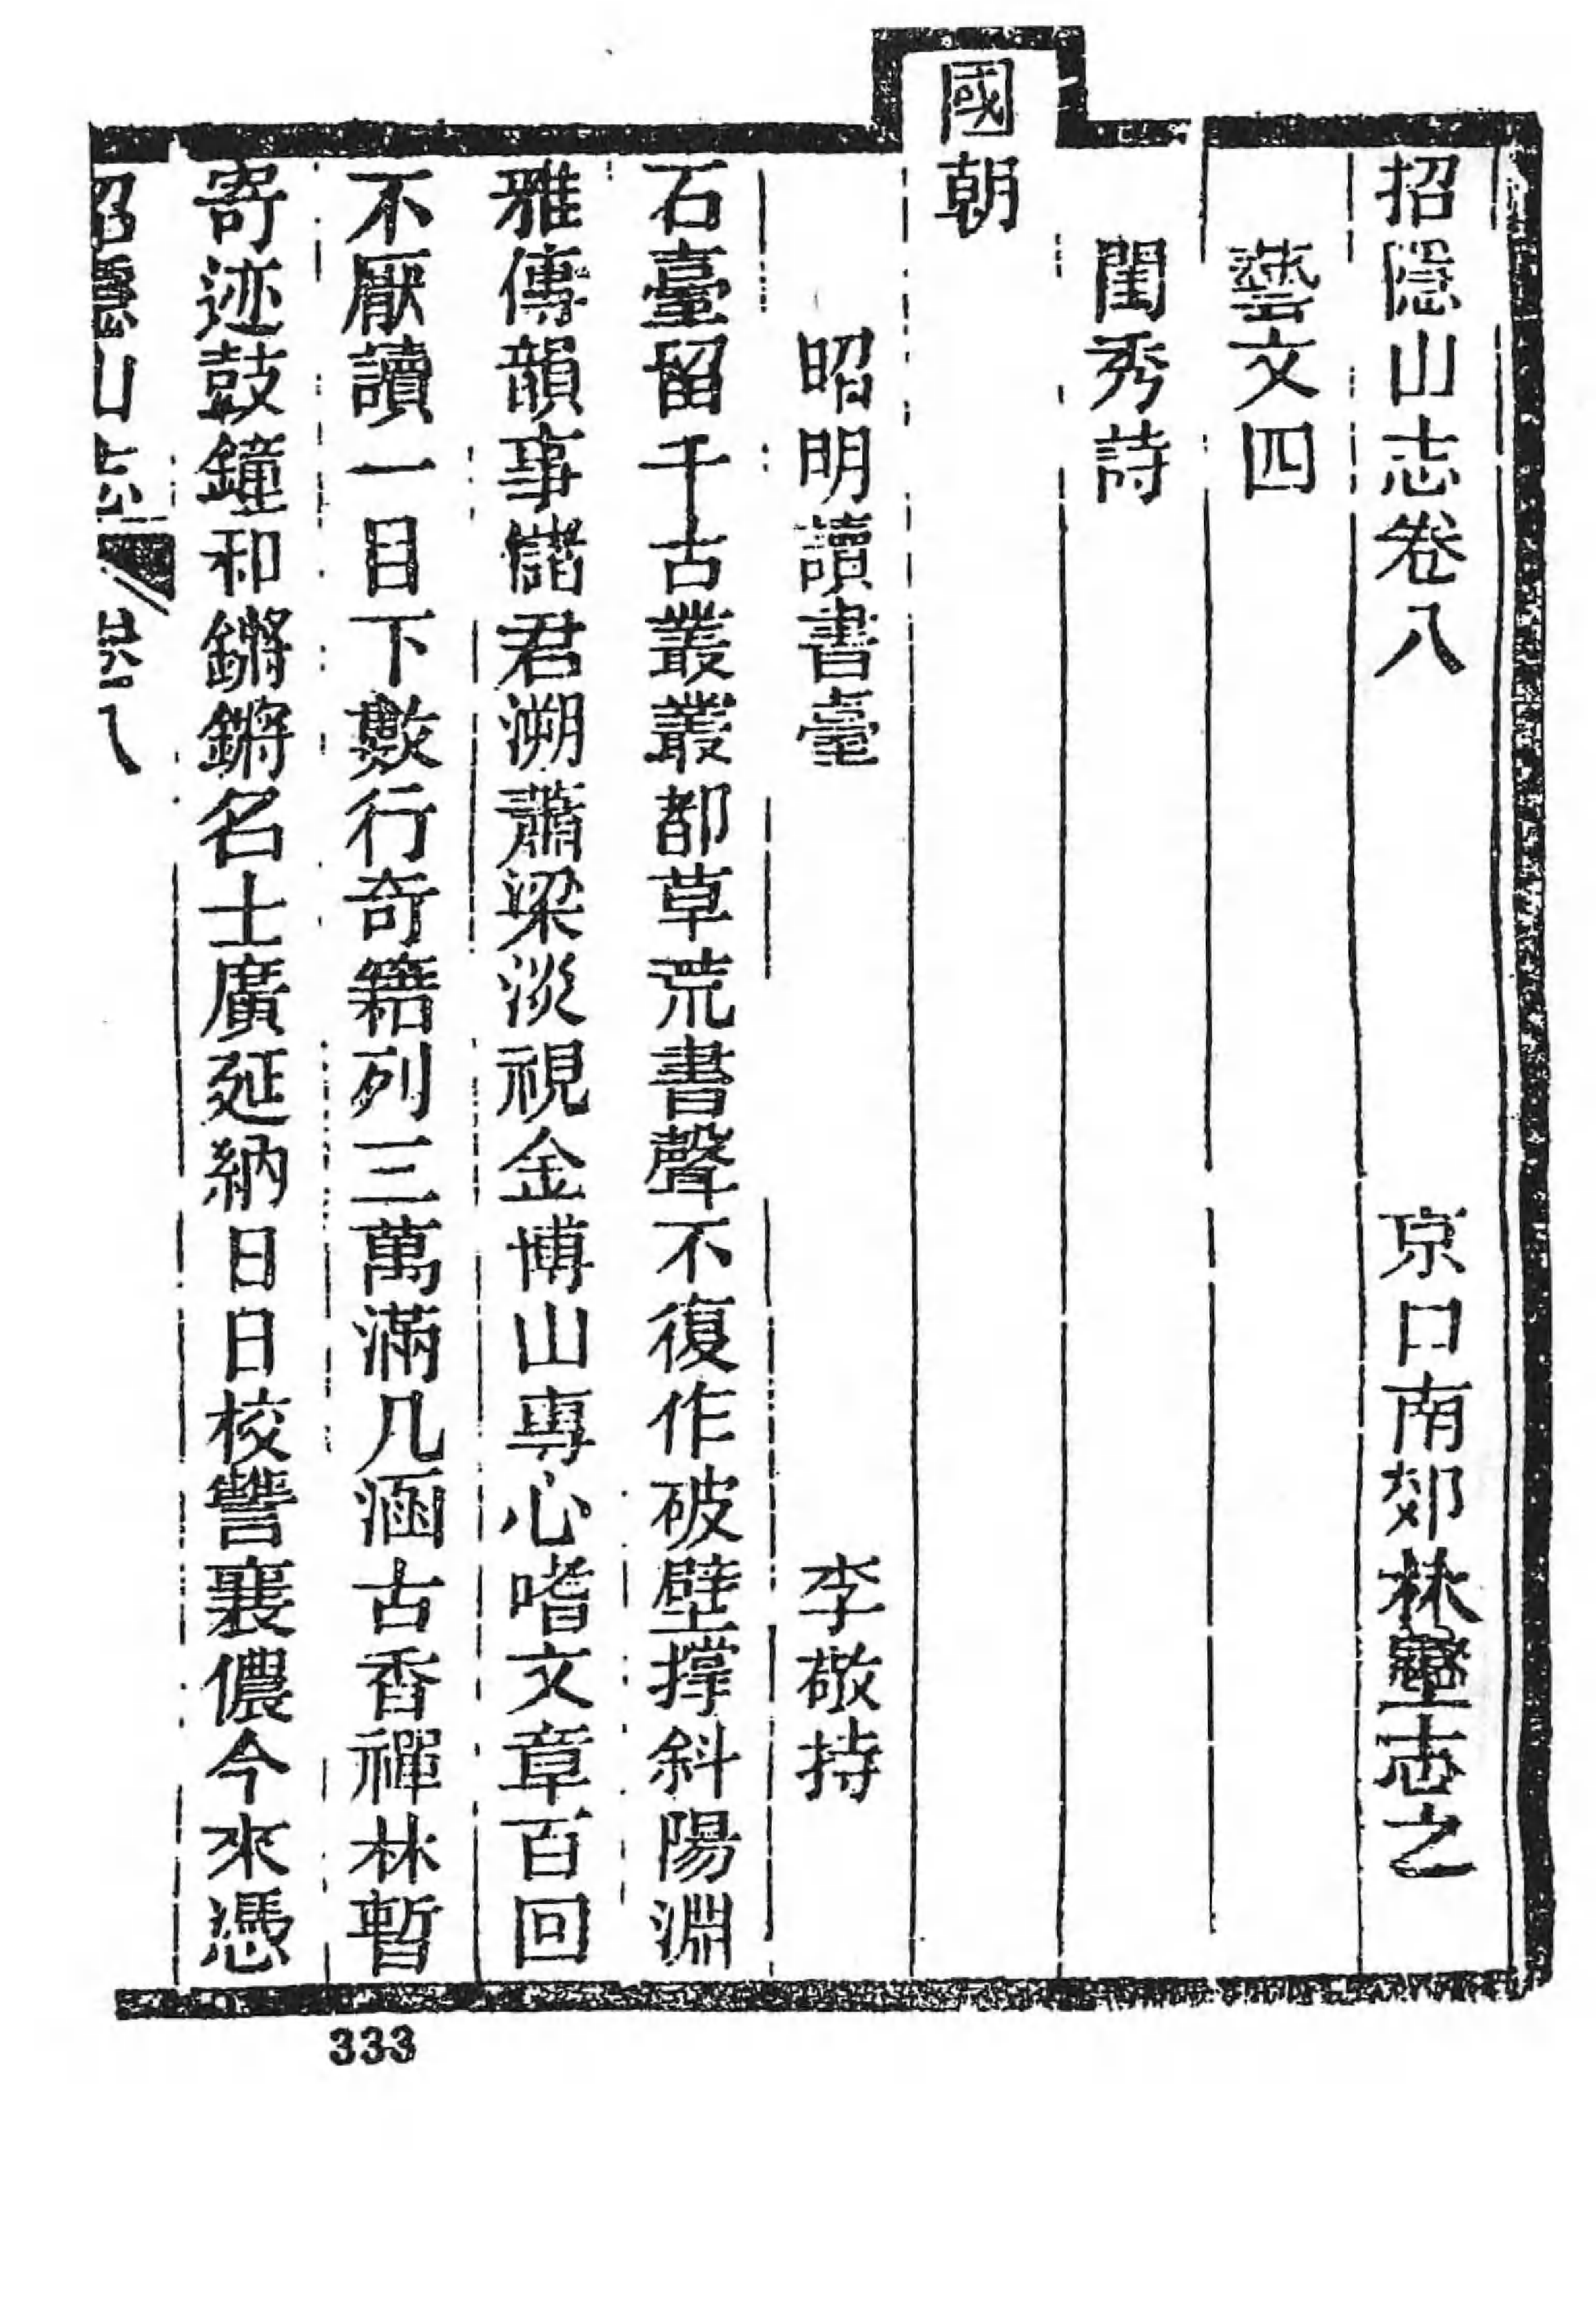 招隱山志卷八 京口南郊林壑志之
藝文四
閨秀詩
國朝
昭明讀書臺 李敬持
石臺留千古叢叢都草荒書聲不復作破壁撐斜陽淵
雅傳韻事儲君溯蕭梁淡視金博山專心嗜文章百回
不厭讀一目下數行奇籍列三萬滿几涵古香禪林暫
寄迹鼓鐘和鏘鏘名士廣延納日日校讐襄儂今來憑
招隱山志 卷八
333